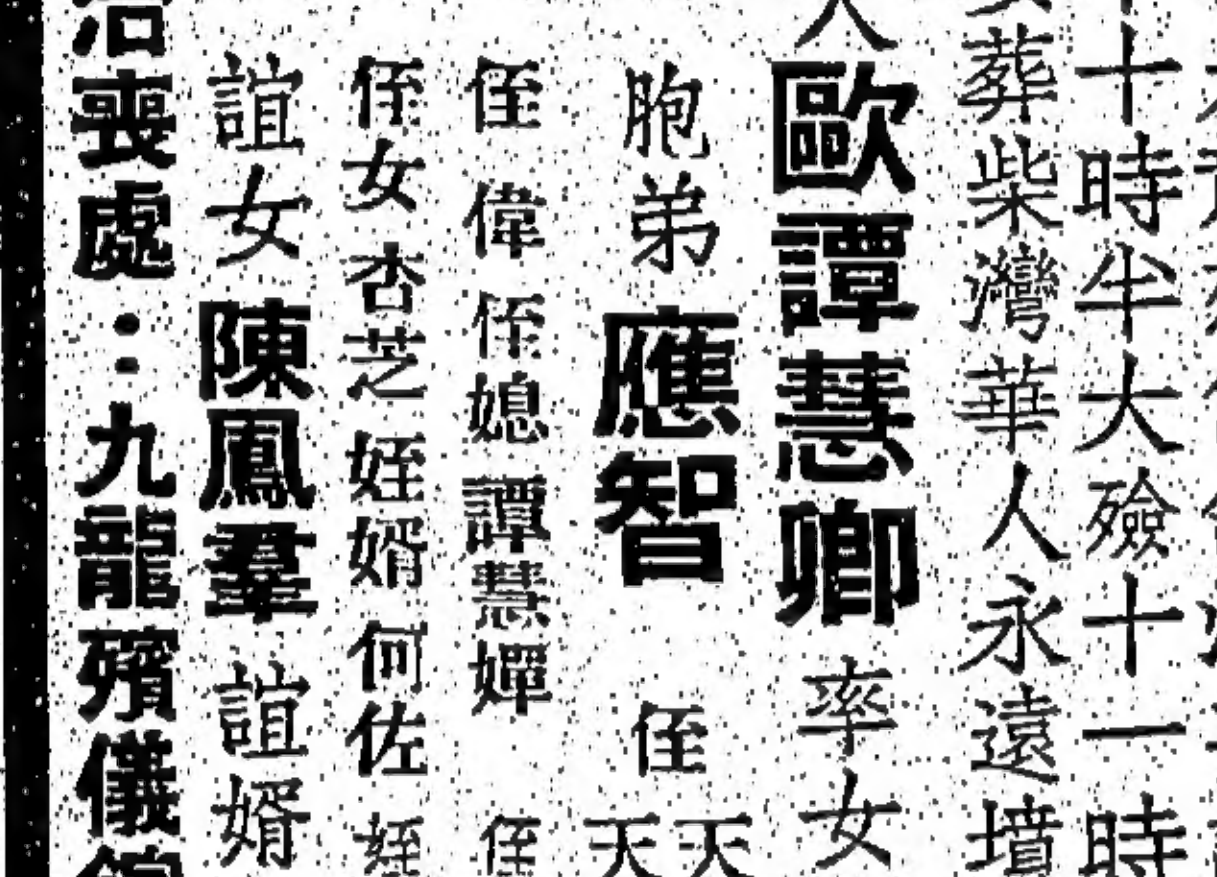 十時半大殮十一時
葬柴灣華人永遠墳
人歐譚慧卿率女
胞弟應智 侄天天
侄偉侄媳譚慧嬋 侄
侄女杏芝姪婿何佐姪
誼女陳鳳羣誼婿
治喪處：九龍殯儀館